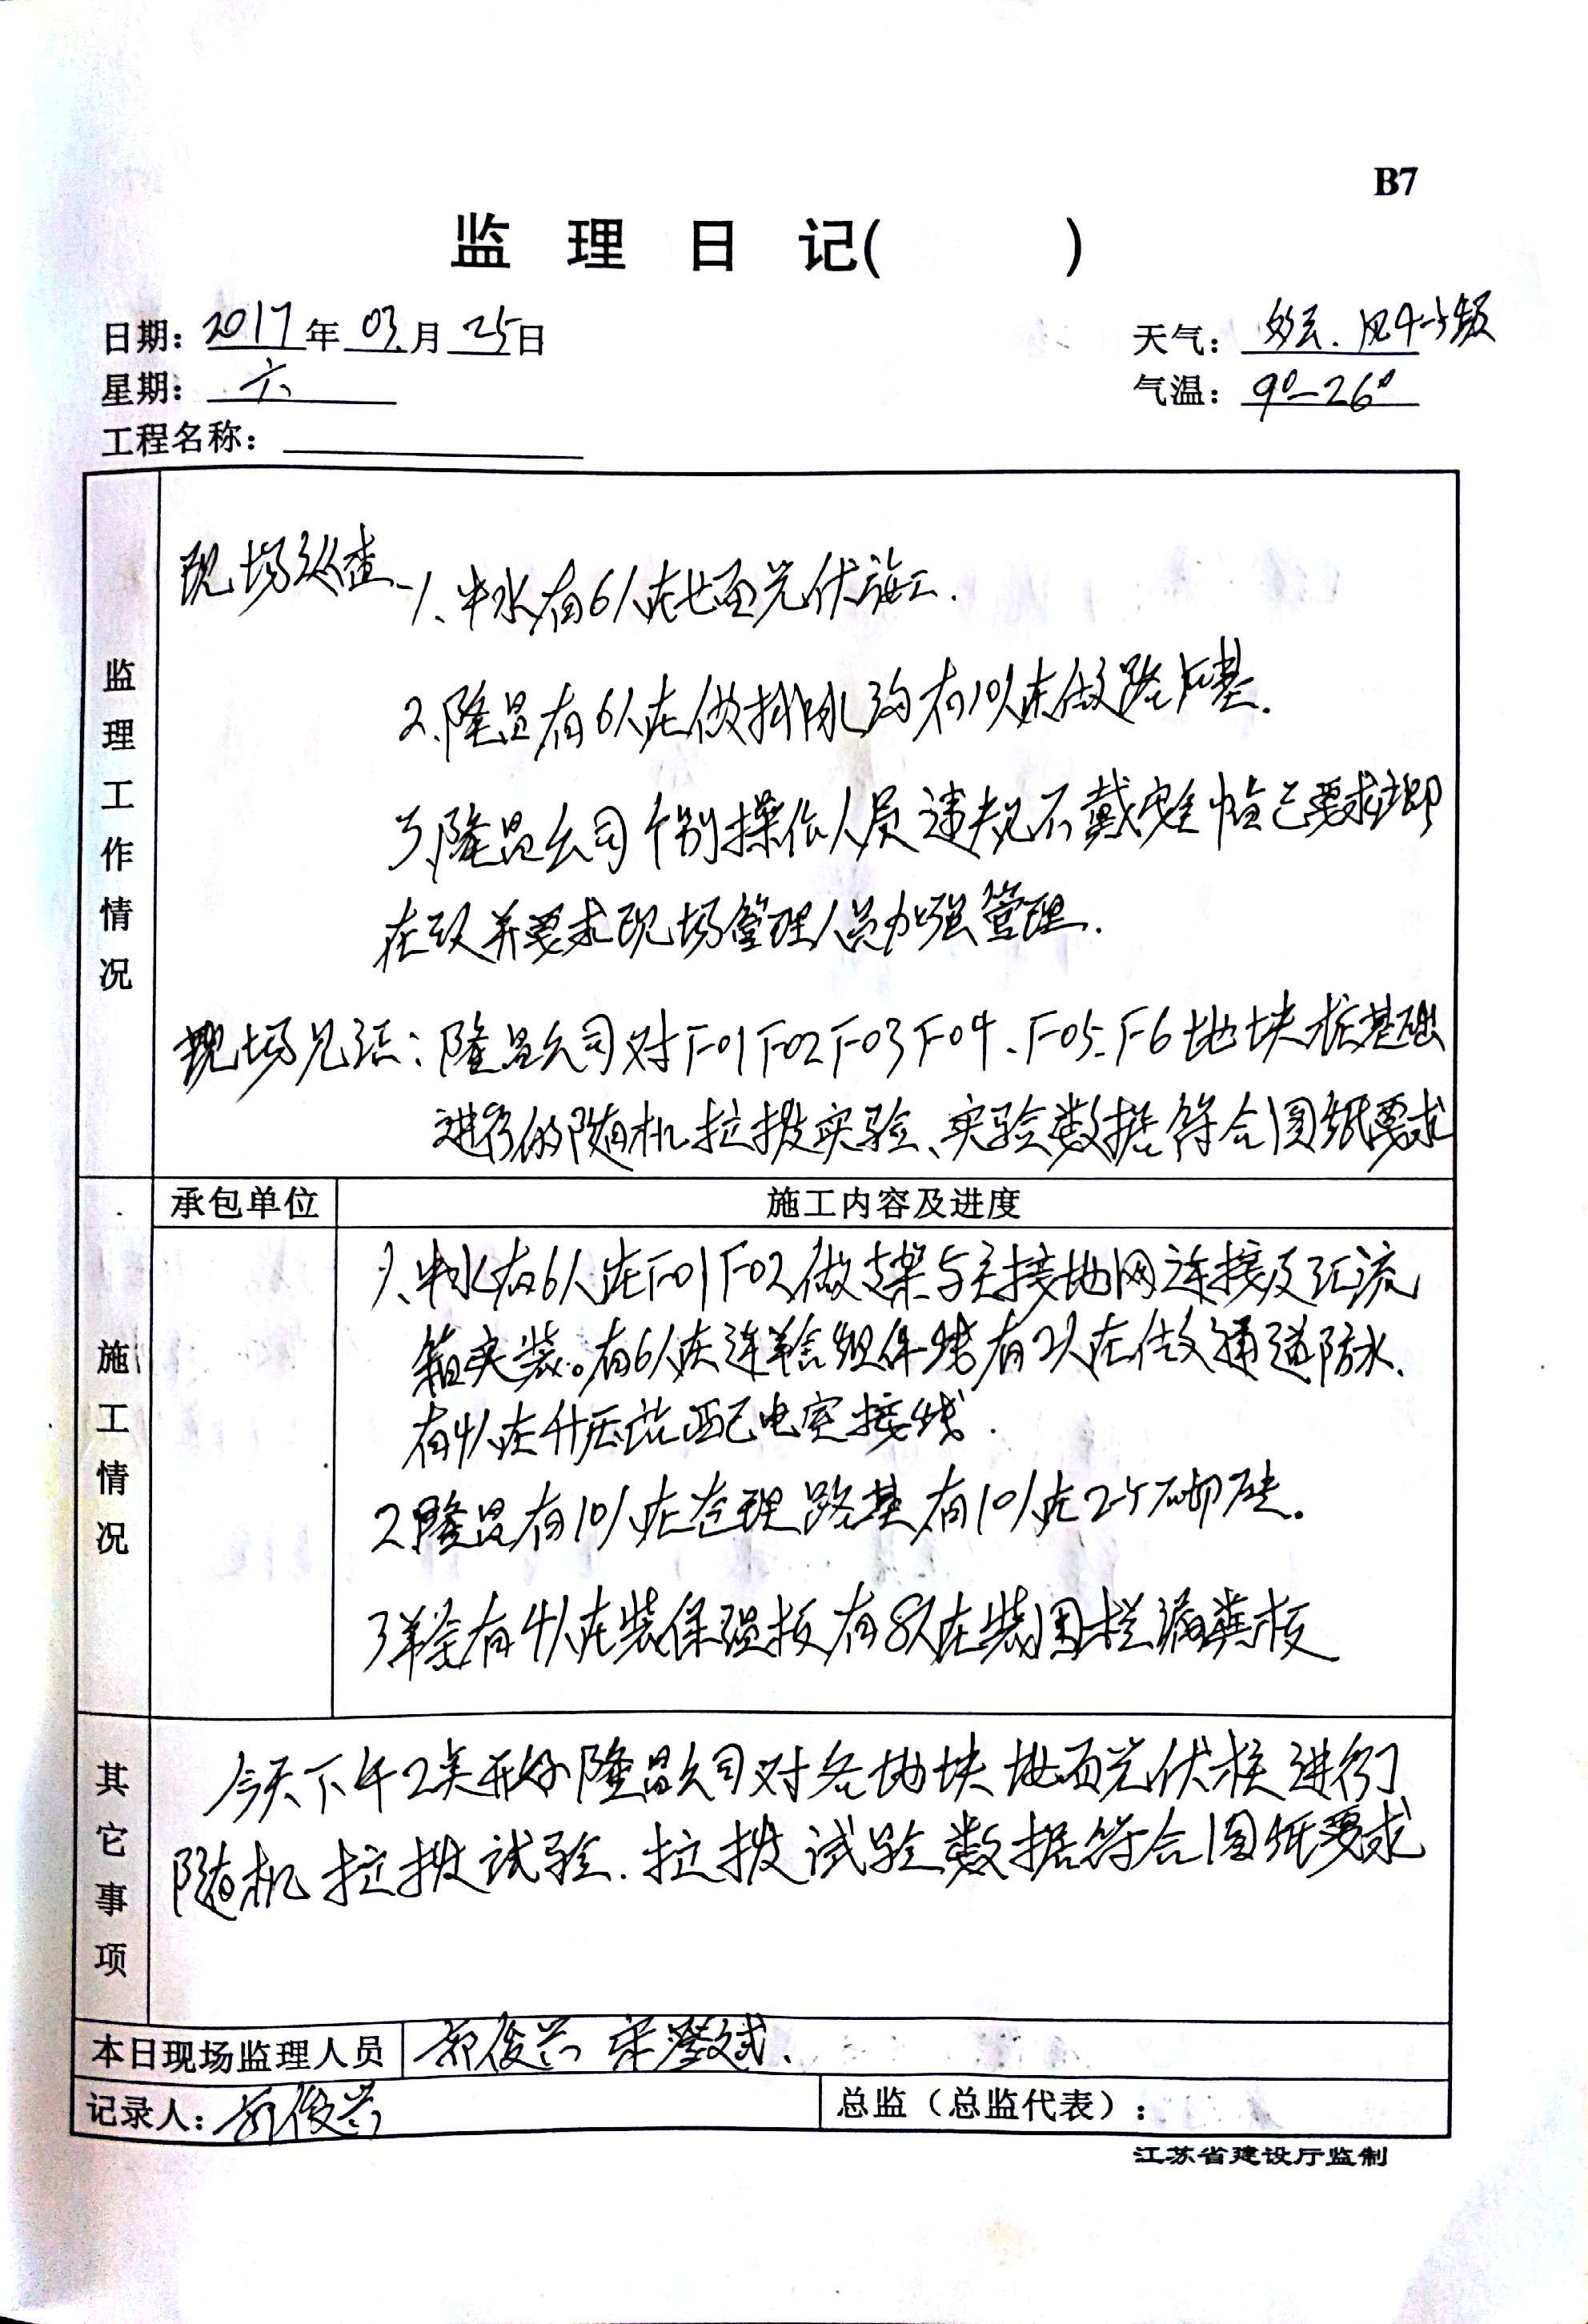 B7
监 理 日 记( )
日期: 2017 年 03 月 25 日
天气: 多云. 风4-5级
星期: 六
气温: 9°-26°
工程名称:
监理工作情况
现场巡查 1、中水有6人在地面光伏施工.
2、隆昌有6人在做排水沟有10人在做路床基.
3、隆昌公司个别操作人员违规不戴安全帽已要求立即
在改并要求现场管理人员加强管理.
现场见证: 隆昌公司对F01 F02 F03 F04、F05、F6地块桩基础
进行的随机拉拔实验、实验数据符合图纸要求
承包单位
施工内容及进度
施工情况
1、中水有6人在F01 F02做支架与主接地网连接及汇流
箱安装。有6人在连羊舍组件线有2人在做通道防水.
有4人在升压站配电室接线.
2隆昌有10人在处理路基有10人在砌砖.
3羊舍有4人在装保温板有8人在装围栏漏粪板
其它事项
今天下午2点开始隆昌公司对各地块地面光伏桩进行
随机拉拔试验. 拉拔试验数据符合图纸要求
本日现场监理人员 郭俊兰
记录人: 郭俊兰
总监（总监代表）:
江苏省建设厅监制